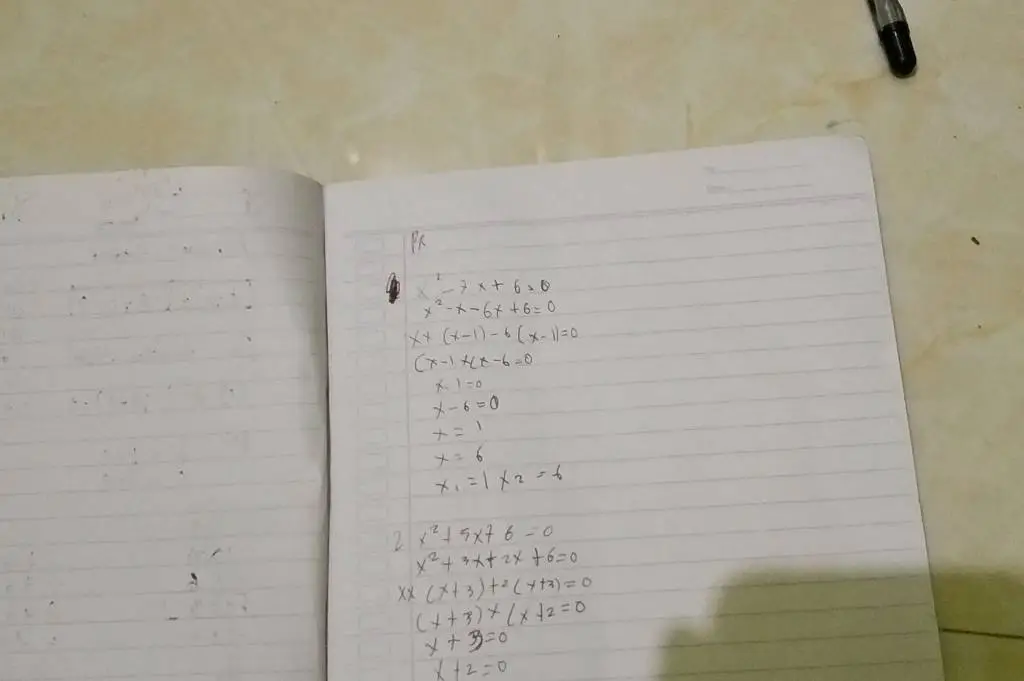 PR
x² - 7x + 6 = 0
x² - x - 6x + 6 = 0
x x (x-1) - 6 (x-1) = 0
(x-1 x (x-6 = 0
x-1 = 0
x - 6 = 0
x = 1
x = 6
x₁ = 1 x2 = 6
2 x² + 5x + 6 = 0
x² + 3x + 2x + 6 = 0
x x (x+3) + 2 (x+3) = 0
(x+3) x (x+2 = 0
x + 3 = 0
x + 2 = 0